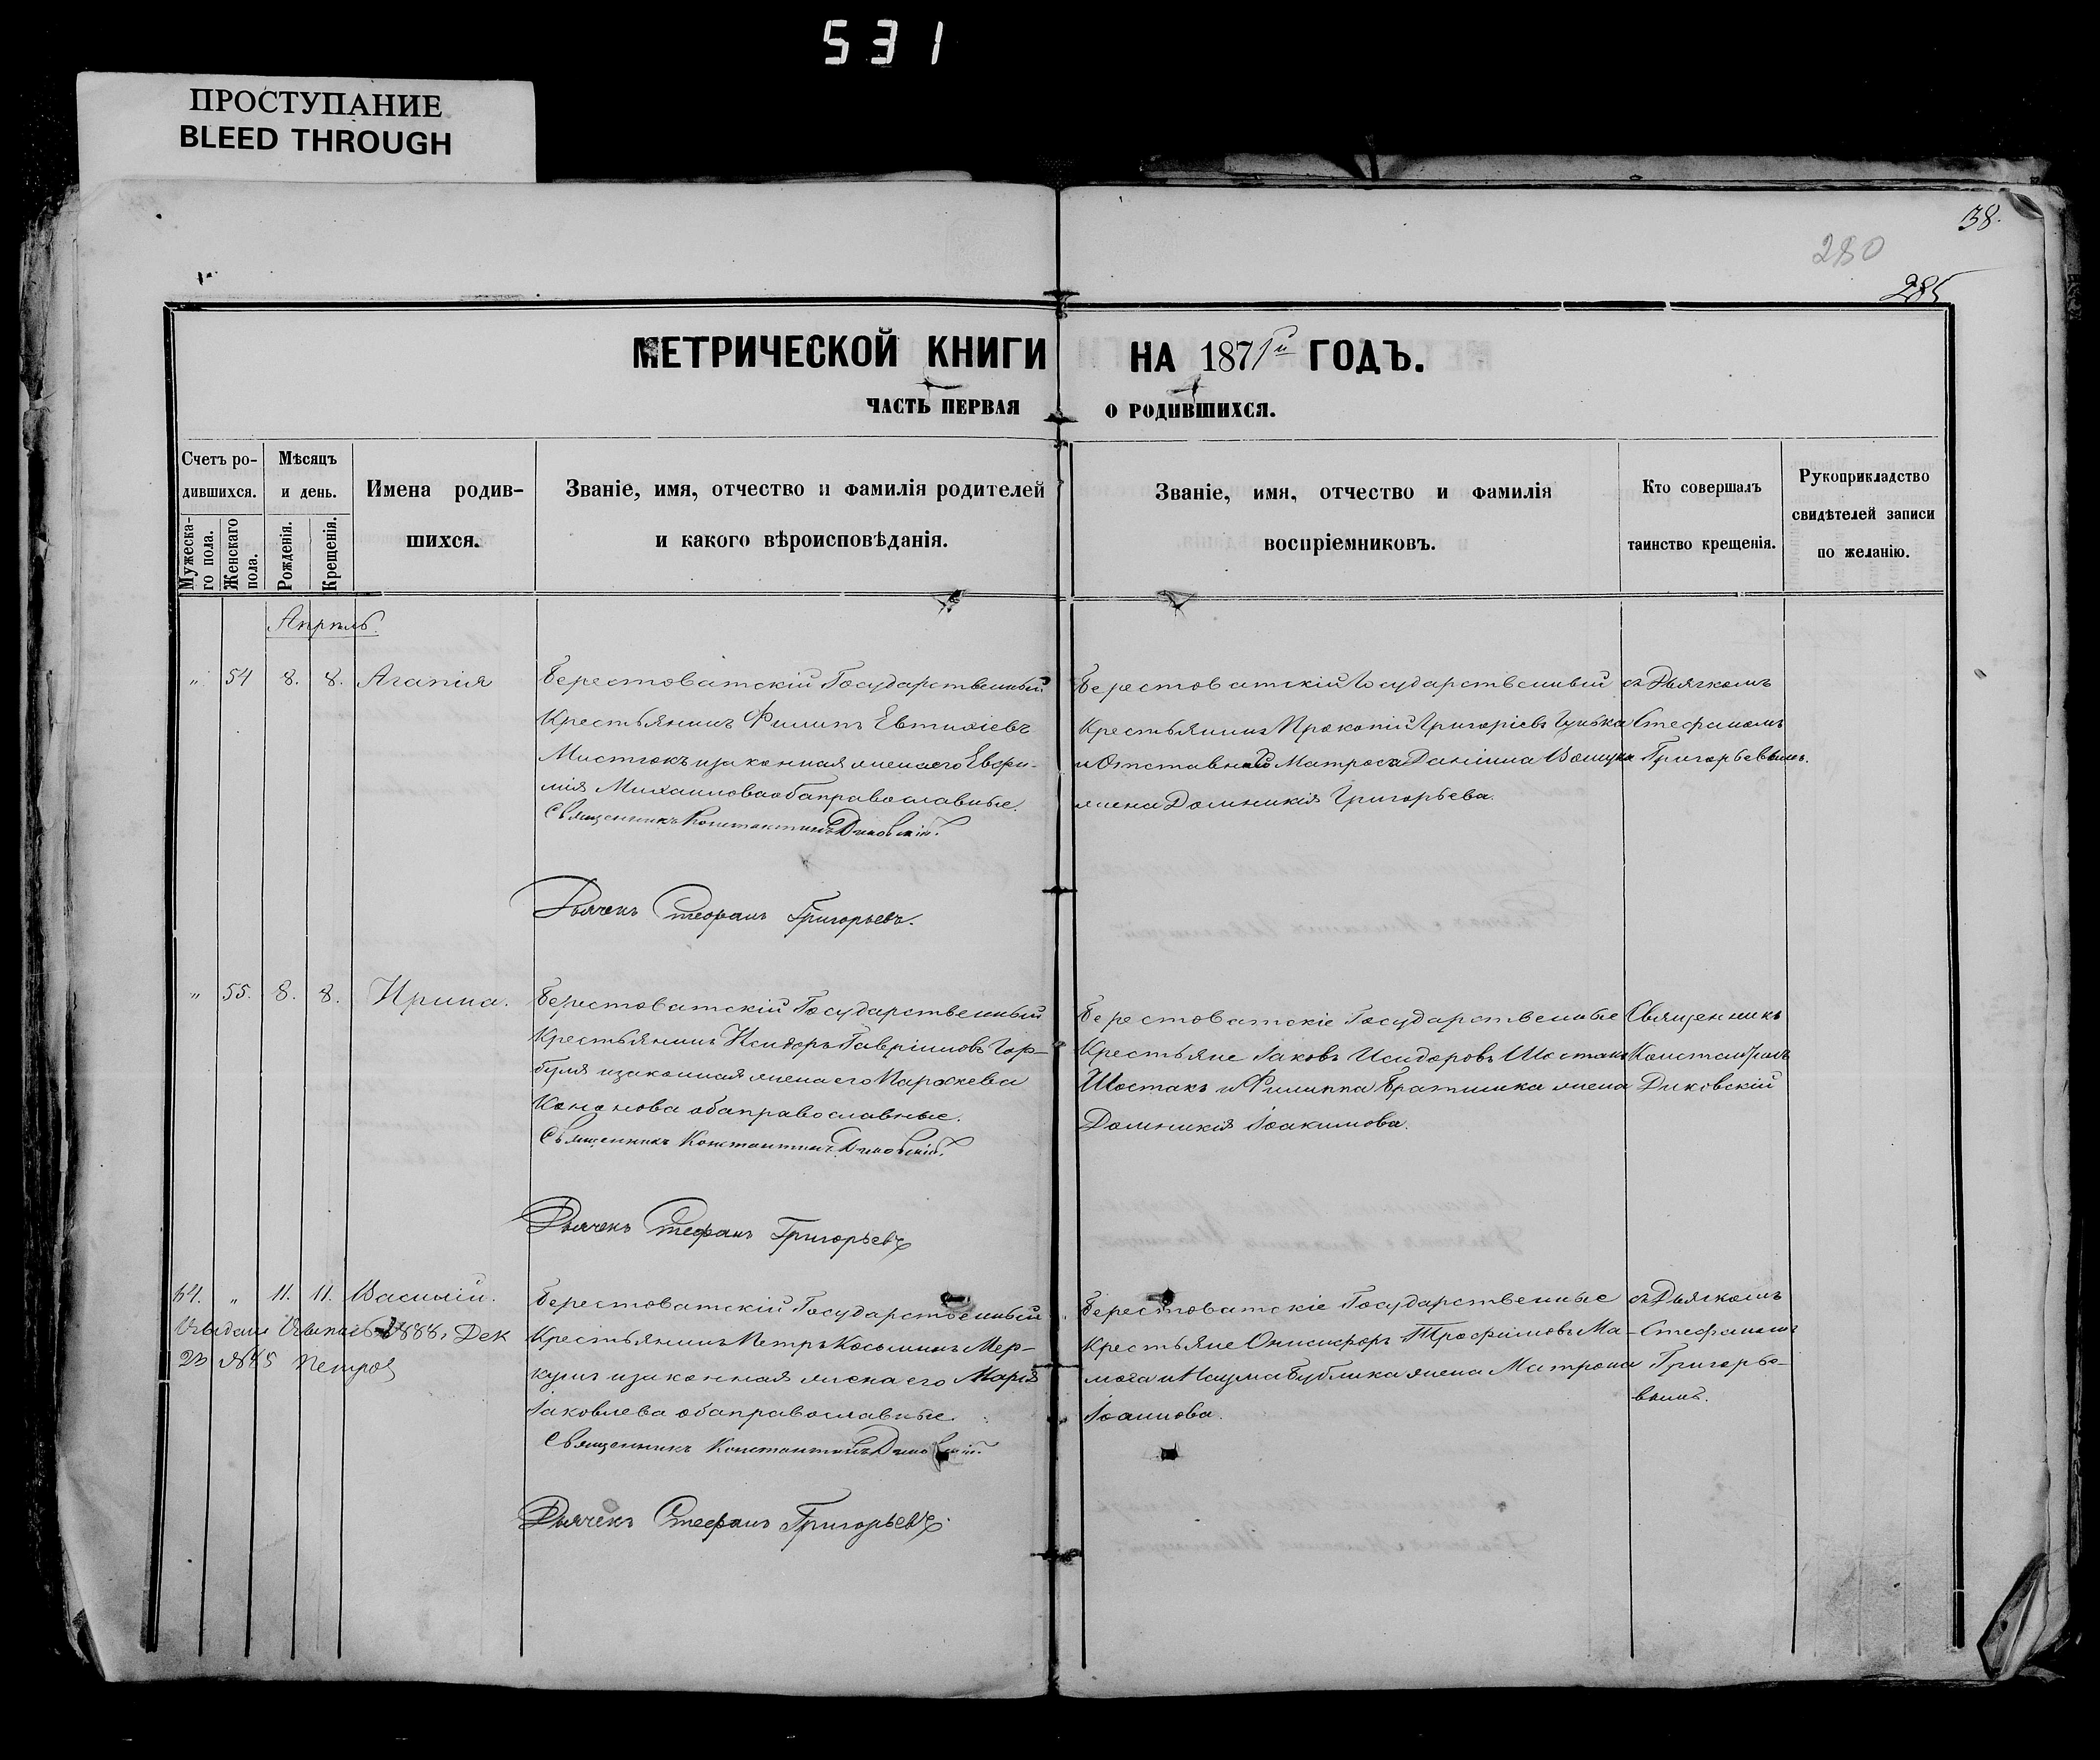 531
ПРОСТУПАНИЕ
BLEED THROUGH
38.
280
285
МЕТРИЧЕСКОЙ КНИГИ НА 1871й ГОДЪ.
ЧАСТЬ ПЕРВАЯ О РОДИВШИХСЯ.
Счетъ ро-
дившихся.
Мужеска-
го пола.
Женскаго
пола.
Мѣсяцъ
и день.
Рожденія.
Крещенія.
Имена родив-
шихся.
Званіе, имя, отчество и фамилія родителей
и какого вѣроисповѣданія.
Званіе, имя, отчество и фамилія
воспріемниковъ.
Кто совершалъ
таинство крещенія.
Рукоприкладство
свидѣтелей записи
по желанію.
Апрѣль.
" 54 8. 8. Агапія
Берестоватскій Государственный
Крестьянинъ Филипъ Евтихіевъ
Мистюкъ и законная жена его Евфи-
мія Михаилова оба православные.
Священникъ Константинъ Диковскій.
Дьячекъ Стефанъ Григорьевъ.
Берестоватскій Государственный
Крестьянинъ Прокопій Григоріевъ
и Отставнаго Матроса Даніила
жена Домникія Григорьева.
съ Дьячкомъ
Стефаномъ
Григорьевымъ.
" 55. 8. 8. Ирина.
Берестоватскій Государственный
Крестьянинъ Исидоръ Гавріиловъ Гор-
буля и законная жена его Параскева
Кононова оба православные.
Священникъ Константинъ Диковскій.
Дьячекъ Стефанъ Григорьевъ
Берестоватскіе Государственные
Крестьяне Іаковъ Исидоровъ Шостакъ
Шостакъ и Филиппа Братишка жена
Домникія Іоакимова.
Священникъ
Константинъ
Диковскій
64. " 11. 11. Василій.
Выдана 1888, Дек
23 №45
Берестоватскій Государственный
Крестьянинъ Петръ Косминъ Мер-
кулъ и законная жена его Марія
Іаковлева оба православные.
Священникъ Константинъ Диковскій.
Дьячекъ Стефанъ Григорьевъ.
Берестоватскіе Государственные
Крестьяне Онисифоръ Трофимовъ Ма-
мога и Наума Бублика жена Матрона
Іоаннова.
съ Дьячкомъ
Стефаномъ
Григорье-
вымъ.